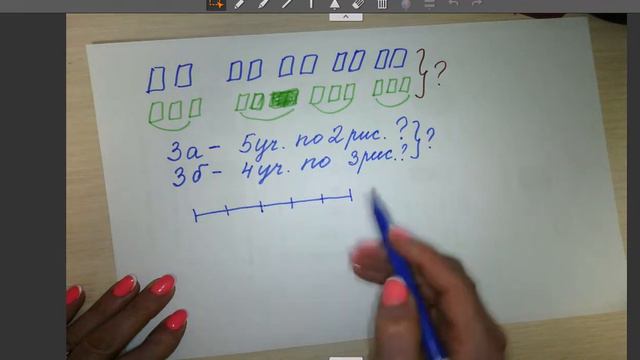 ?
3а – 5уч. по 2 рис. ? } ?
3б – 4уч. по 3рис. ?